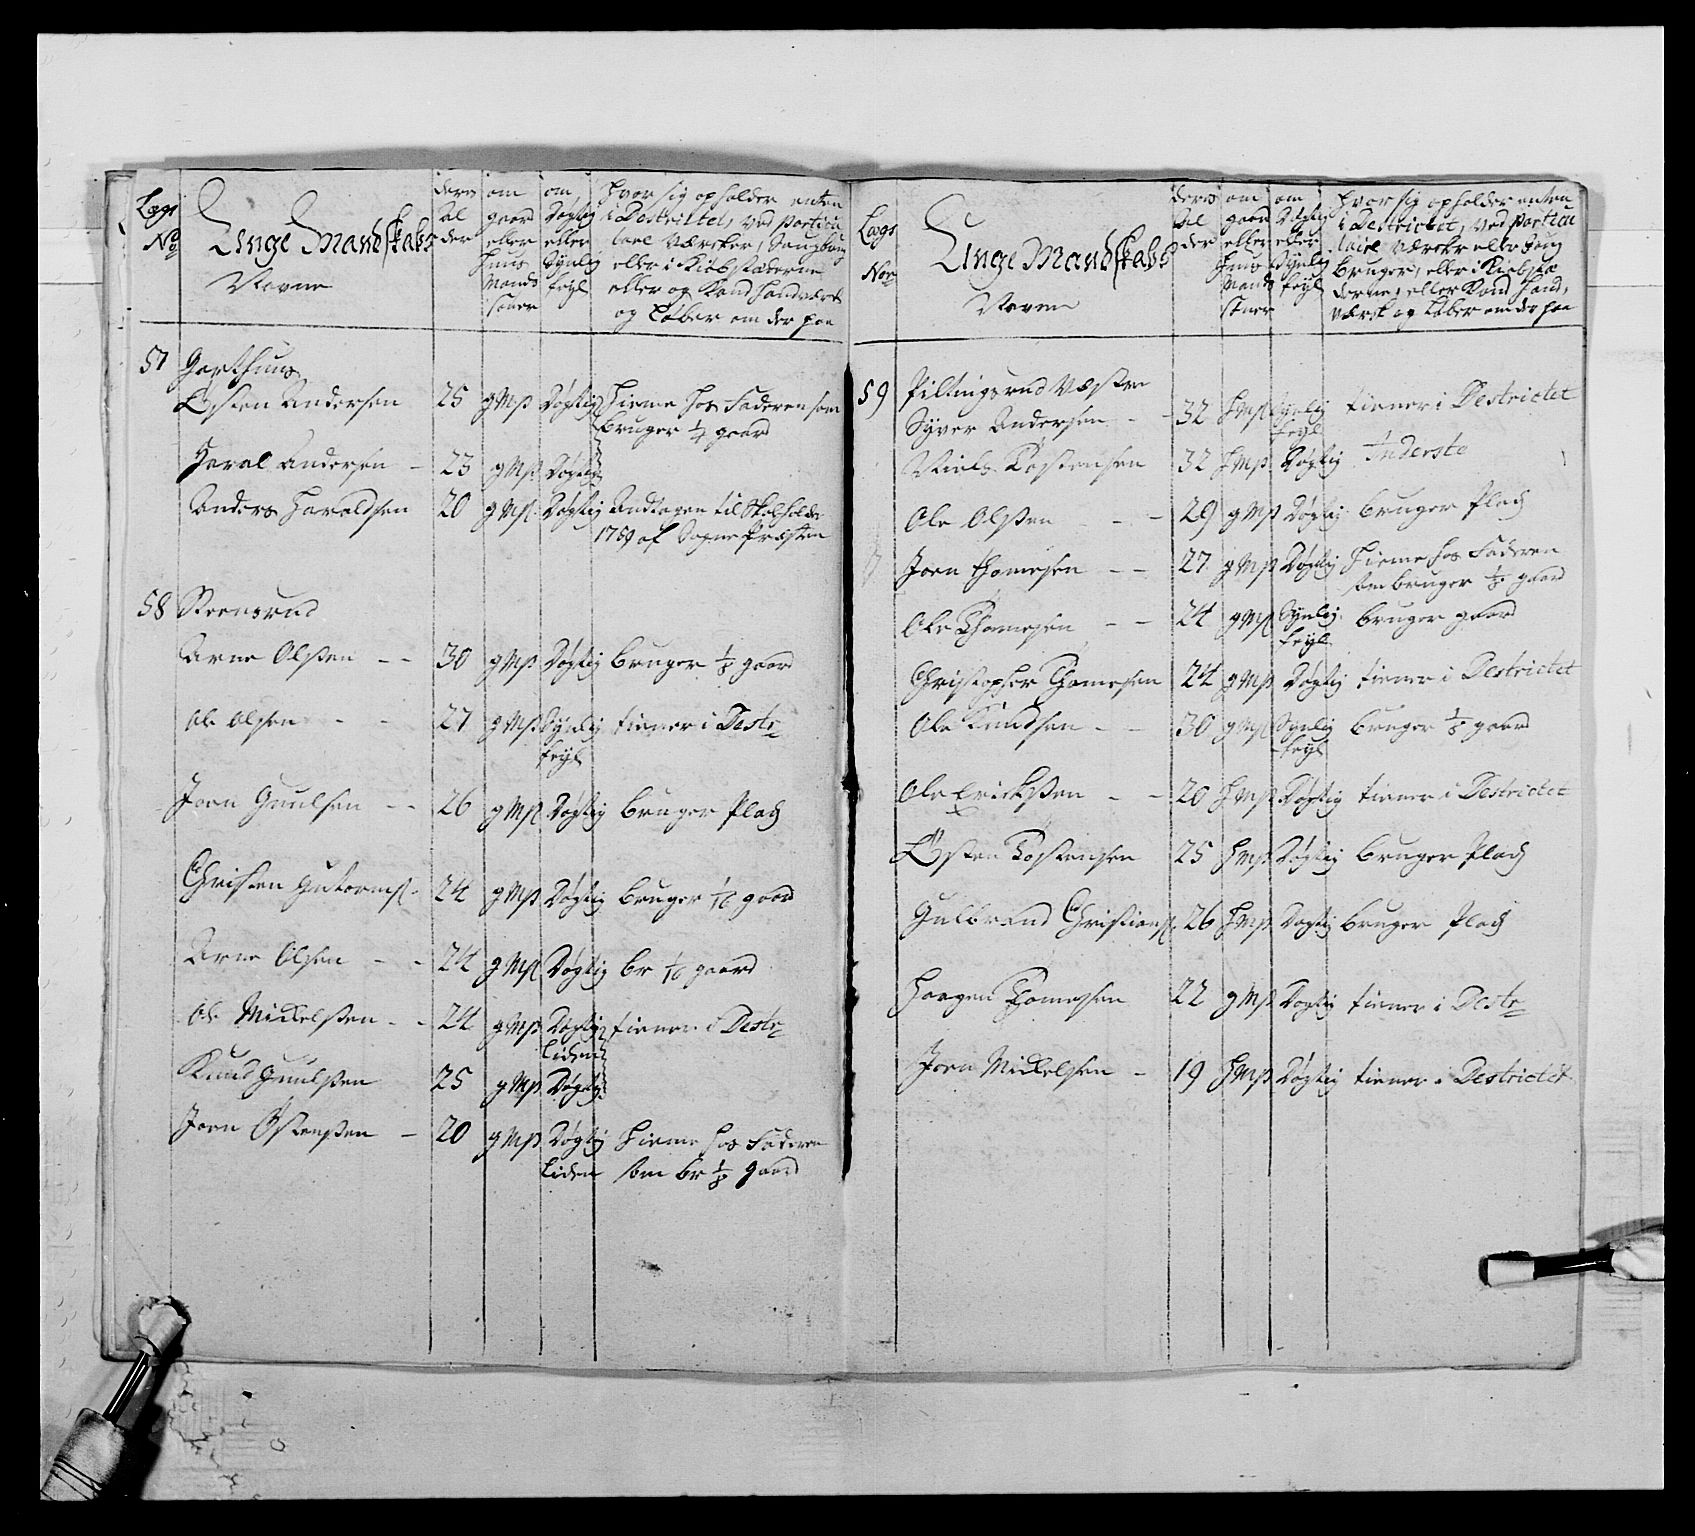 Lags
No
Unge Mandskabs
Navne
deres
Al
der
om
gaard
eller
huus
Mands
sønner
om
Døgtig
eller
Synlig
feyl
Hvor sig opholder enten
i Destrictet, ved particu
lair Værcker, Saugbrug
eller i Kiøbstæderne
eller og Kand Handværck
og Løber om der paa
57 Garthuus
Østen Andersen 25 g Mß Døgtig Hieme hos Faderen som
bruger 1/4 gaard
Haral Andersen - 23 g Mß Døgtig
Anders Haraldsen 20 g Mß Døgtig Andtagen til Skolholder
1759 af Sogne Præsten
58 Steensrud
Arne Olßen - - 30 g Mß Døgtig bruger 1/8 gaard
Ole Olsen - - 27 g Mß Synlig tiener i Destr
feyl
Joen Guulsen - - 26 g Mß Døgtig bruger Plads
Christen Guttormß - 24 g Mß Døgtig bruger 1/16 gaard
Arne Olsen - - 24 g Mß Døgtig br 1/16 gaard
Ole Mickelßen - - 24 g Mß Døgtig tiener i Destr
liden
Knud Guulßen 25 g Mß Døgtig
Joen Østenßen - 20 g Mß Døgtig Hieme hos Faderen
liden som br 1/8 gaard
Lags
Nor
Unge Mandskabs
Navne
deres
Al
der
om
gaard
eller
huus
Mands
sønner
om
Døgtig
eller
Synlig
feyl
Hvor sig opholder enten
i Destrictet, ved particu
lair Værcker eller Saug
bruger, eller i Kiøbstæ
derne, eller Kand Hand,
værck og Løber om der paa
59 Piltingsrud Væstre
Syver Andersen - - 32 H Mß Synlig tiener i Destrictet
feyl
Niels Tostensen 32 H Mß Døgtig Inderste
Ole Olßen - - - 29 g Mß Døgtig bruger Plads
Joen Thomesen - - 27 g Mß Døgtig Hieme hos Faderen
som bruger 1/8 gaard
Ole Thomesen - - 24 g Mß Synlig bruger gaard
feyl
Christopher Thomesen 24 g Mß Døgtig tiener i Destrictet
Ole Knudsen - - 30 g Mß Synlig bruger 1/8 gaard
feyl
Ole Erichßen - - 20 H Mß Døgtig tiener i Destrictet
Østen Tostensen 25 H Mß Døgtig bruger Plads
Gulbrand Christianß. 26 H Mß Døgtig bruger Plads
Haagen Thomesen 22 g Mß Døgtig tiener i Destr
Joen Mickelsen - 19 H Mß Døgtig tiener i Destrictet